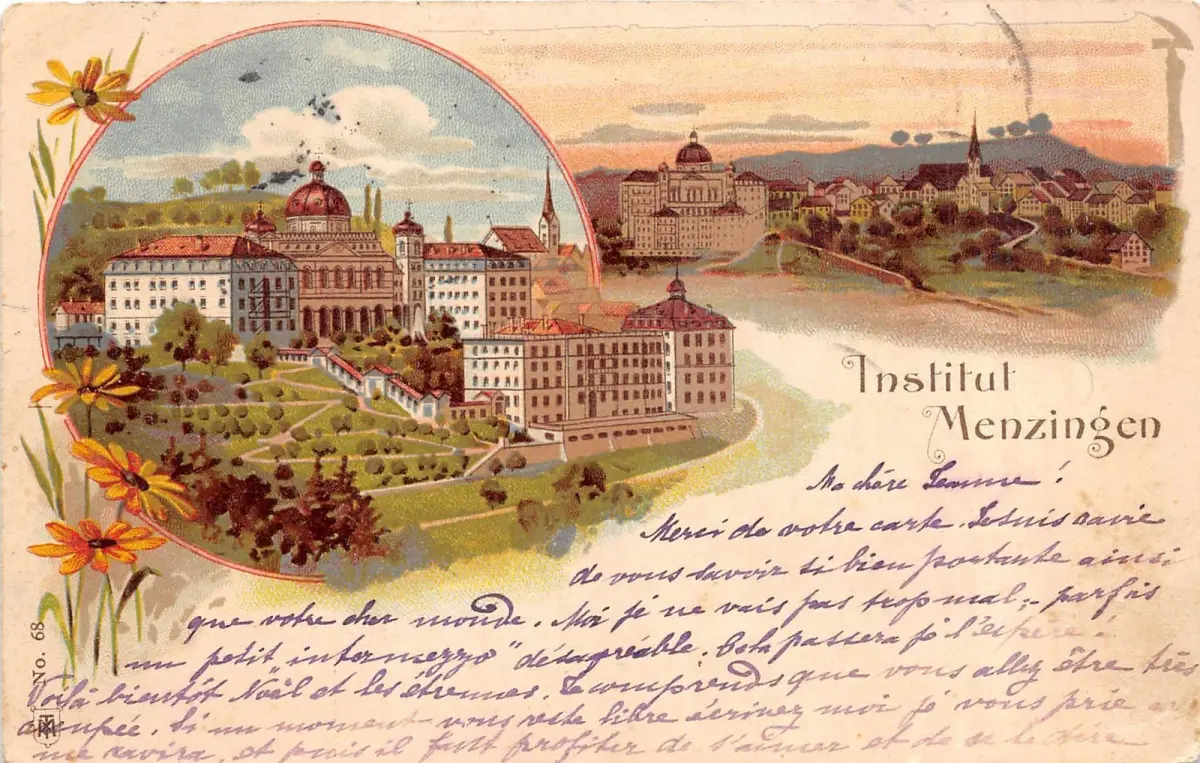 Institut
Menzingen
Ma chère Jeanne!
Merci de votre carte. Je suis ravie
de vous savoir si bien portante ainsi
que votre cher monde. Moi je ne vais pas trop mal; - parfois
un petit "intermezzo" désagréable. Cela passera je l'espère!
Voilà bientôt Noël et les étrennes. Je comprends que vous allez être très
occupée. Si un moment vous reste libre écrivez moi je vous prie
me ravira, et puis il faut profiter de s'aimer et de se le dire
No. 68